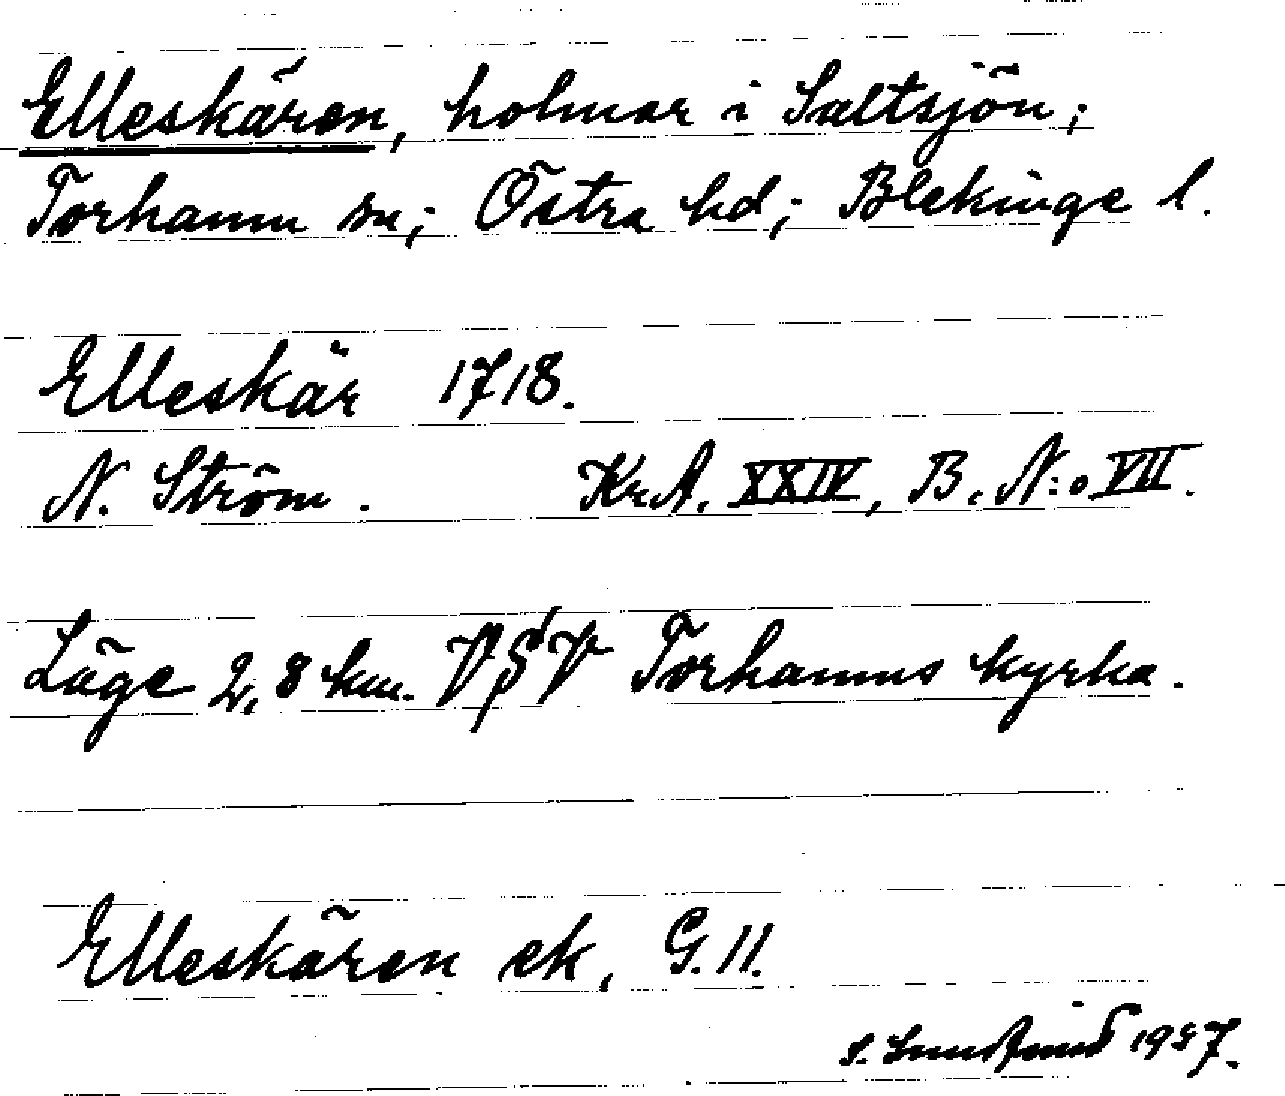 Elleskären, holmar i Saltsjön;
Torhamn sn; Östra hd; Blekinge l.
Elleskär 1718.
N. Ström. KrA. XXIV, B. N:o VII.
Läge 2,8 km. VSV Torhamns kyrka.
Elleskären ek, G.11.
S. 1957.